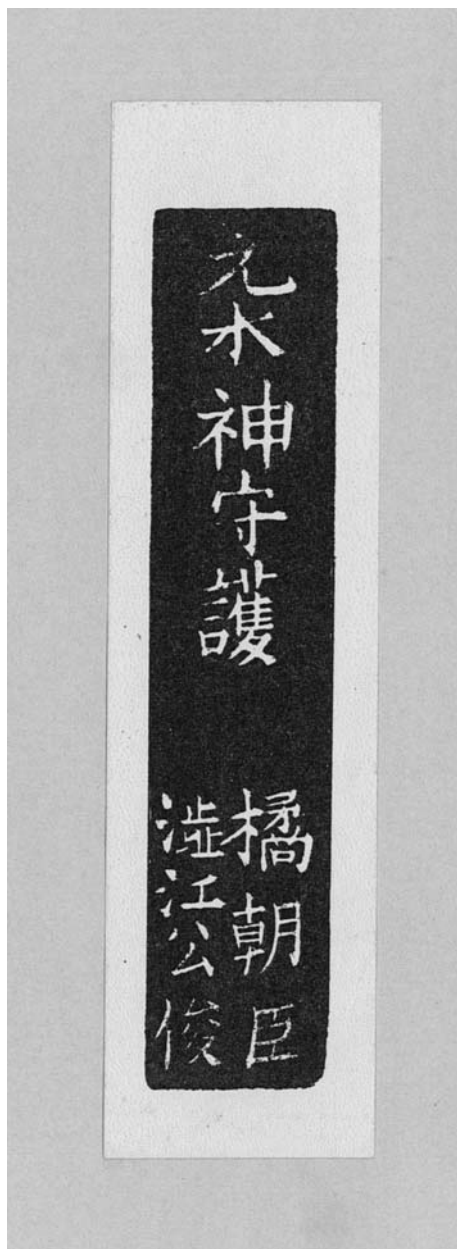 元水神守護
橘朝臣
澁江公俊